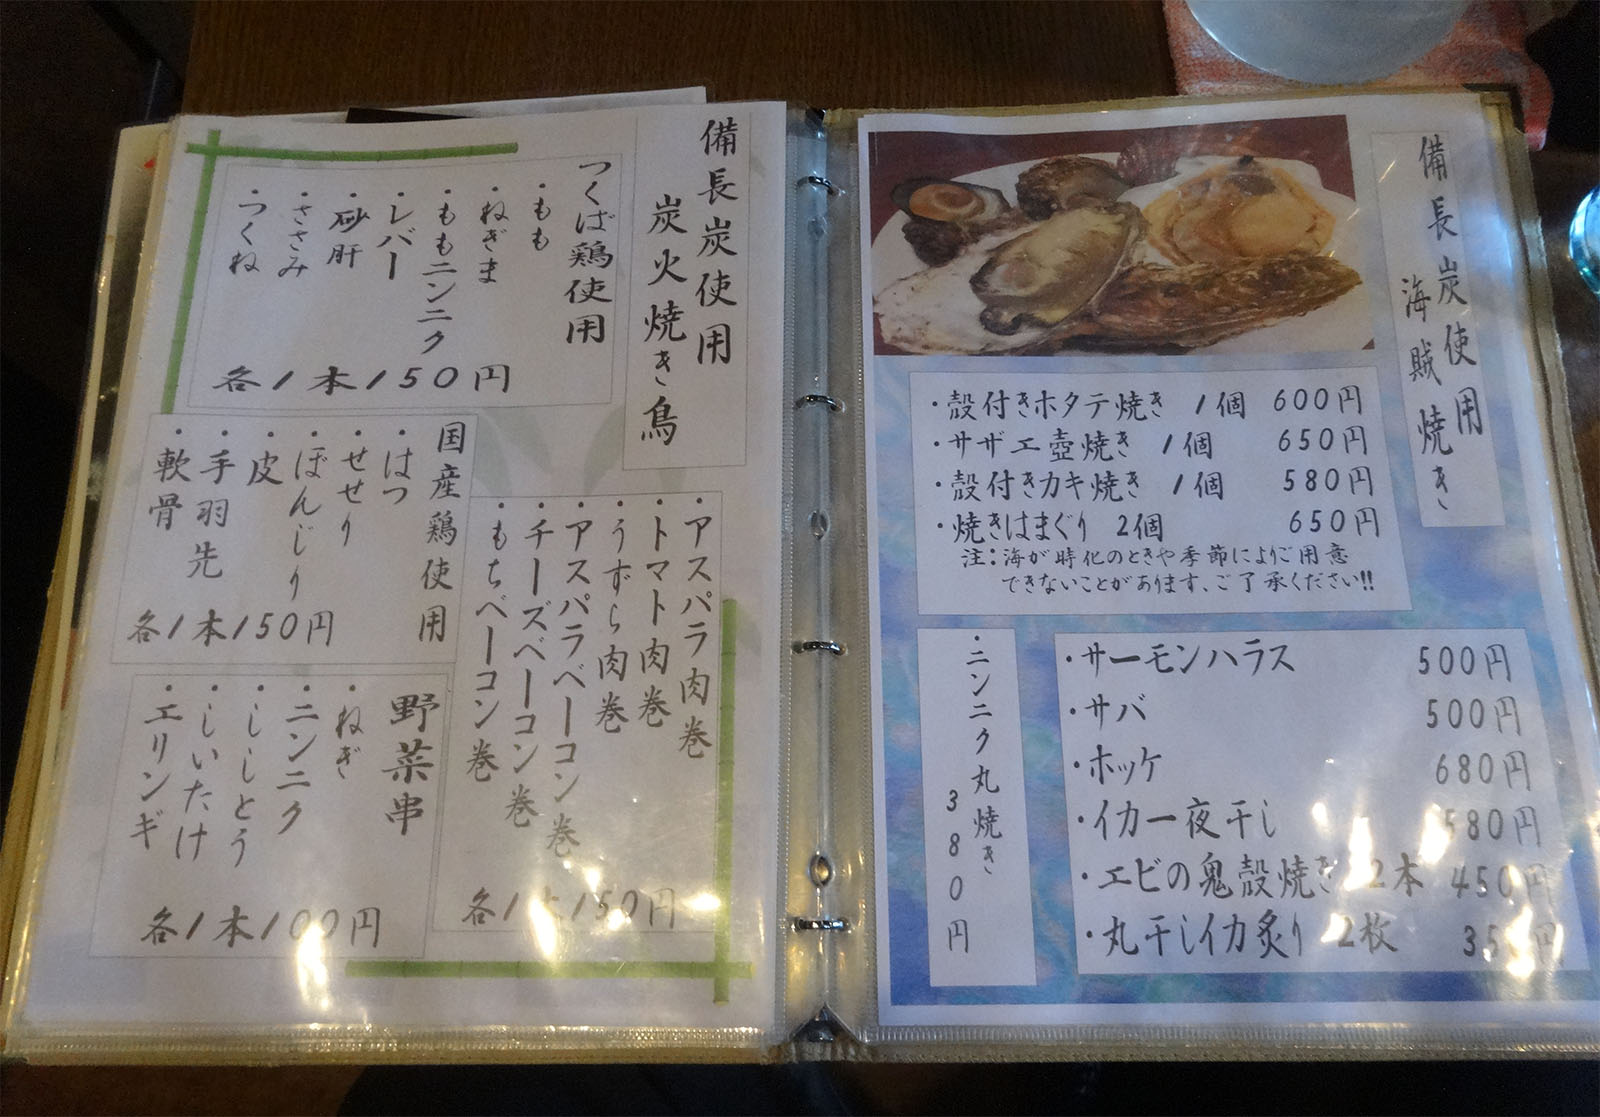 備長炭使用
炭火焼き鳥
つくば鶏使用
・もも
・ねぎま
・ももニンニク
・レバー
・砂肝
・ささみ
・つくね
各1本150円
国産鶏使用
・はつ
・せせり
・ぼんじり
・皮
・手羽先
・軟骨
各1本150円
・アスパラ肉巻
・トマト肉巻
・うずら肉巻
・アスパラベーコン巻
・チーズベーコン巻
・もちベーコン巻
各1本150円
野菜串
・ねぎ
・ニンニク
・ししとう
・しいたけ
・エリンギ
各1本100円
備長炭使用
海賊焼き
・殻付きホタテ焼き 1個 600円
・サザエ壺焼き 1個 650円
・殻付きカキ焼き 1個 580円
・焼きはまぐり 2個 650円
注:海が時化のときや季節によりご用意
できないことがあります、ご了承ください!!
・ニンニク丸焼き
380円
・サーモンハラス 500円
・サバ 500円
・ホッケ 680円
・イカ一夜干し 580円
・エビの鬼殻焼き 2本 450円
・丸干しイカ炙り 2枚